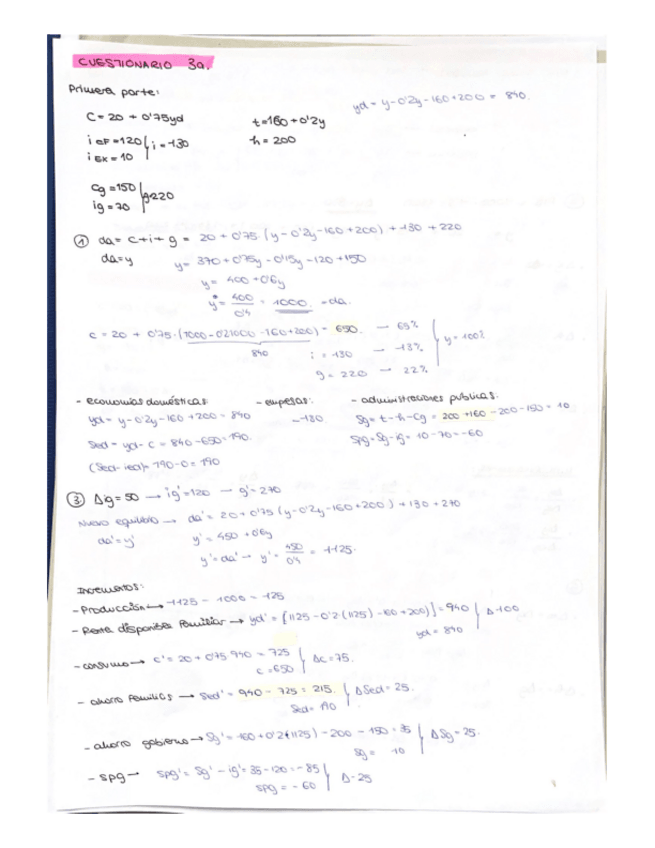 CUESTIONARIO 3a.
Primera parte:
yd = y - 0'2y - 160 + 200 = 840.
C = 20 + 0'75yd
t = 160 + 0'2y
i EF = 120
i = 130
h = 200
i EX = 10
Cg = 150
g = 220
ig = 70
① da = c + i + g = 20 + 0'75 (y - 0'2y - 160 + 200) + 130 + 220
da = y
y = 370 + 0'75y - 0'15y - 120 + 150
y = 400 + 0'6y
y* = 400/0'4 = 1000. = da.
c = 20 + 0'75 · (1000 - 0'21000 - 160 + 200) = 650. — 65%
840
y = 100%
i = 130 — 13%
g = 220 — 22%
- economías domésticas:
- empresas:
- administraciones públicas:
yd = y - 0'2y - 160 + 200 = 840
-130
Sg = t - h - cg = 200 + 160 - 200 - 150 = 10
Sed = yd - c = 840 - 650 = 190.
Spg = Sg - ig = 10 - 70 = -60
(Sed - ied) = 190 - 0 = 190
③ Δig = 50 → ig' = 120 → g' = 270
Nuevo equilibrio → da' = 20 + 0'75 (y - 0'2y - 160 + 200) + 130 + 270
da' = y'
y' = 450 + 0'6y
y' = da' → y' = 450/0'4 = 1125.
Incrementos:
- Producción → 1125 - 1000 = 125
- Renta disponible familiar → yd' = [1125 - 0'2·(1125) - 160 + 200)] = 940
Δ 100
yd = 840
- consumo → c' = 20 + 0'75 · 940 = 725
Δc = 75.
c = 650
- ahorro familias → Sed' = 940 - 725 = 215.
ΔSed = 25.
Sed = 190
- ahorro gobierno → Sg' = 160 + 0'2(1125) - 200 - 150 = 35
ΔSg = 25.
Sg = 10
- spg → spg' = Sg' - ig' = 35 - 120 = -85
Δ -25
spg = -60